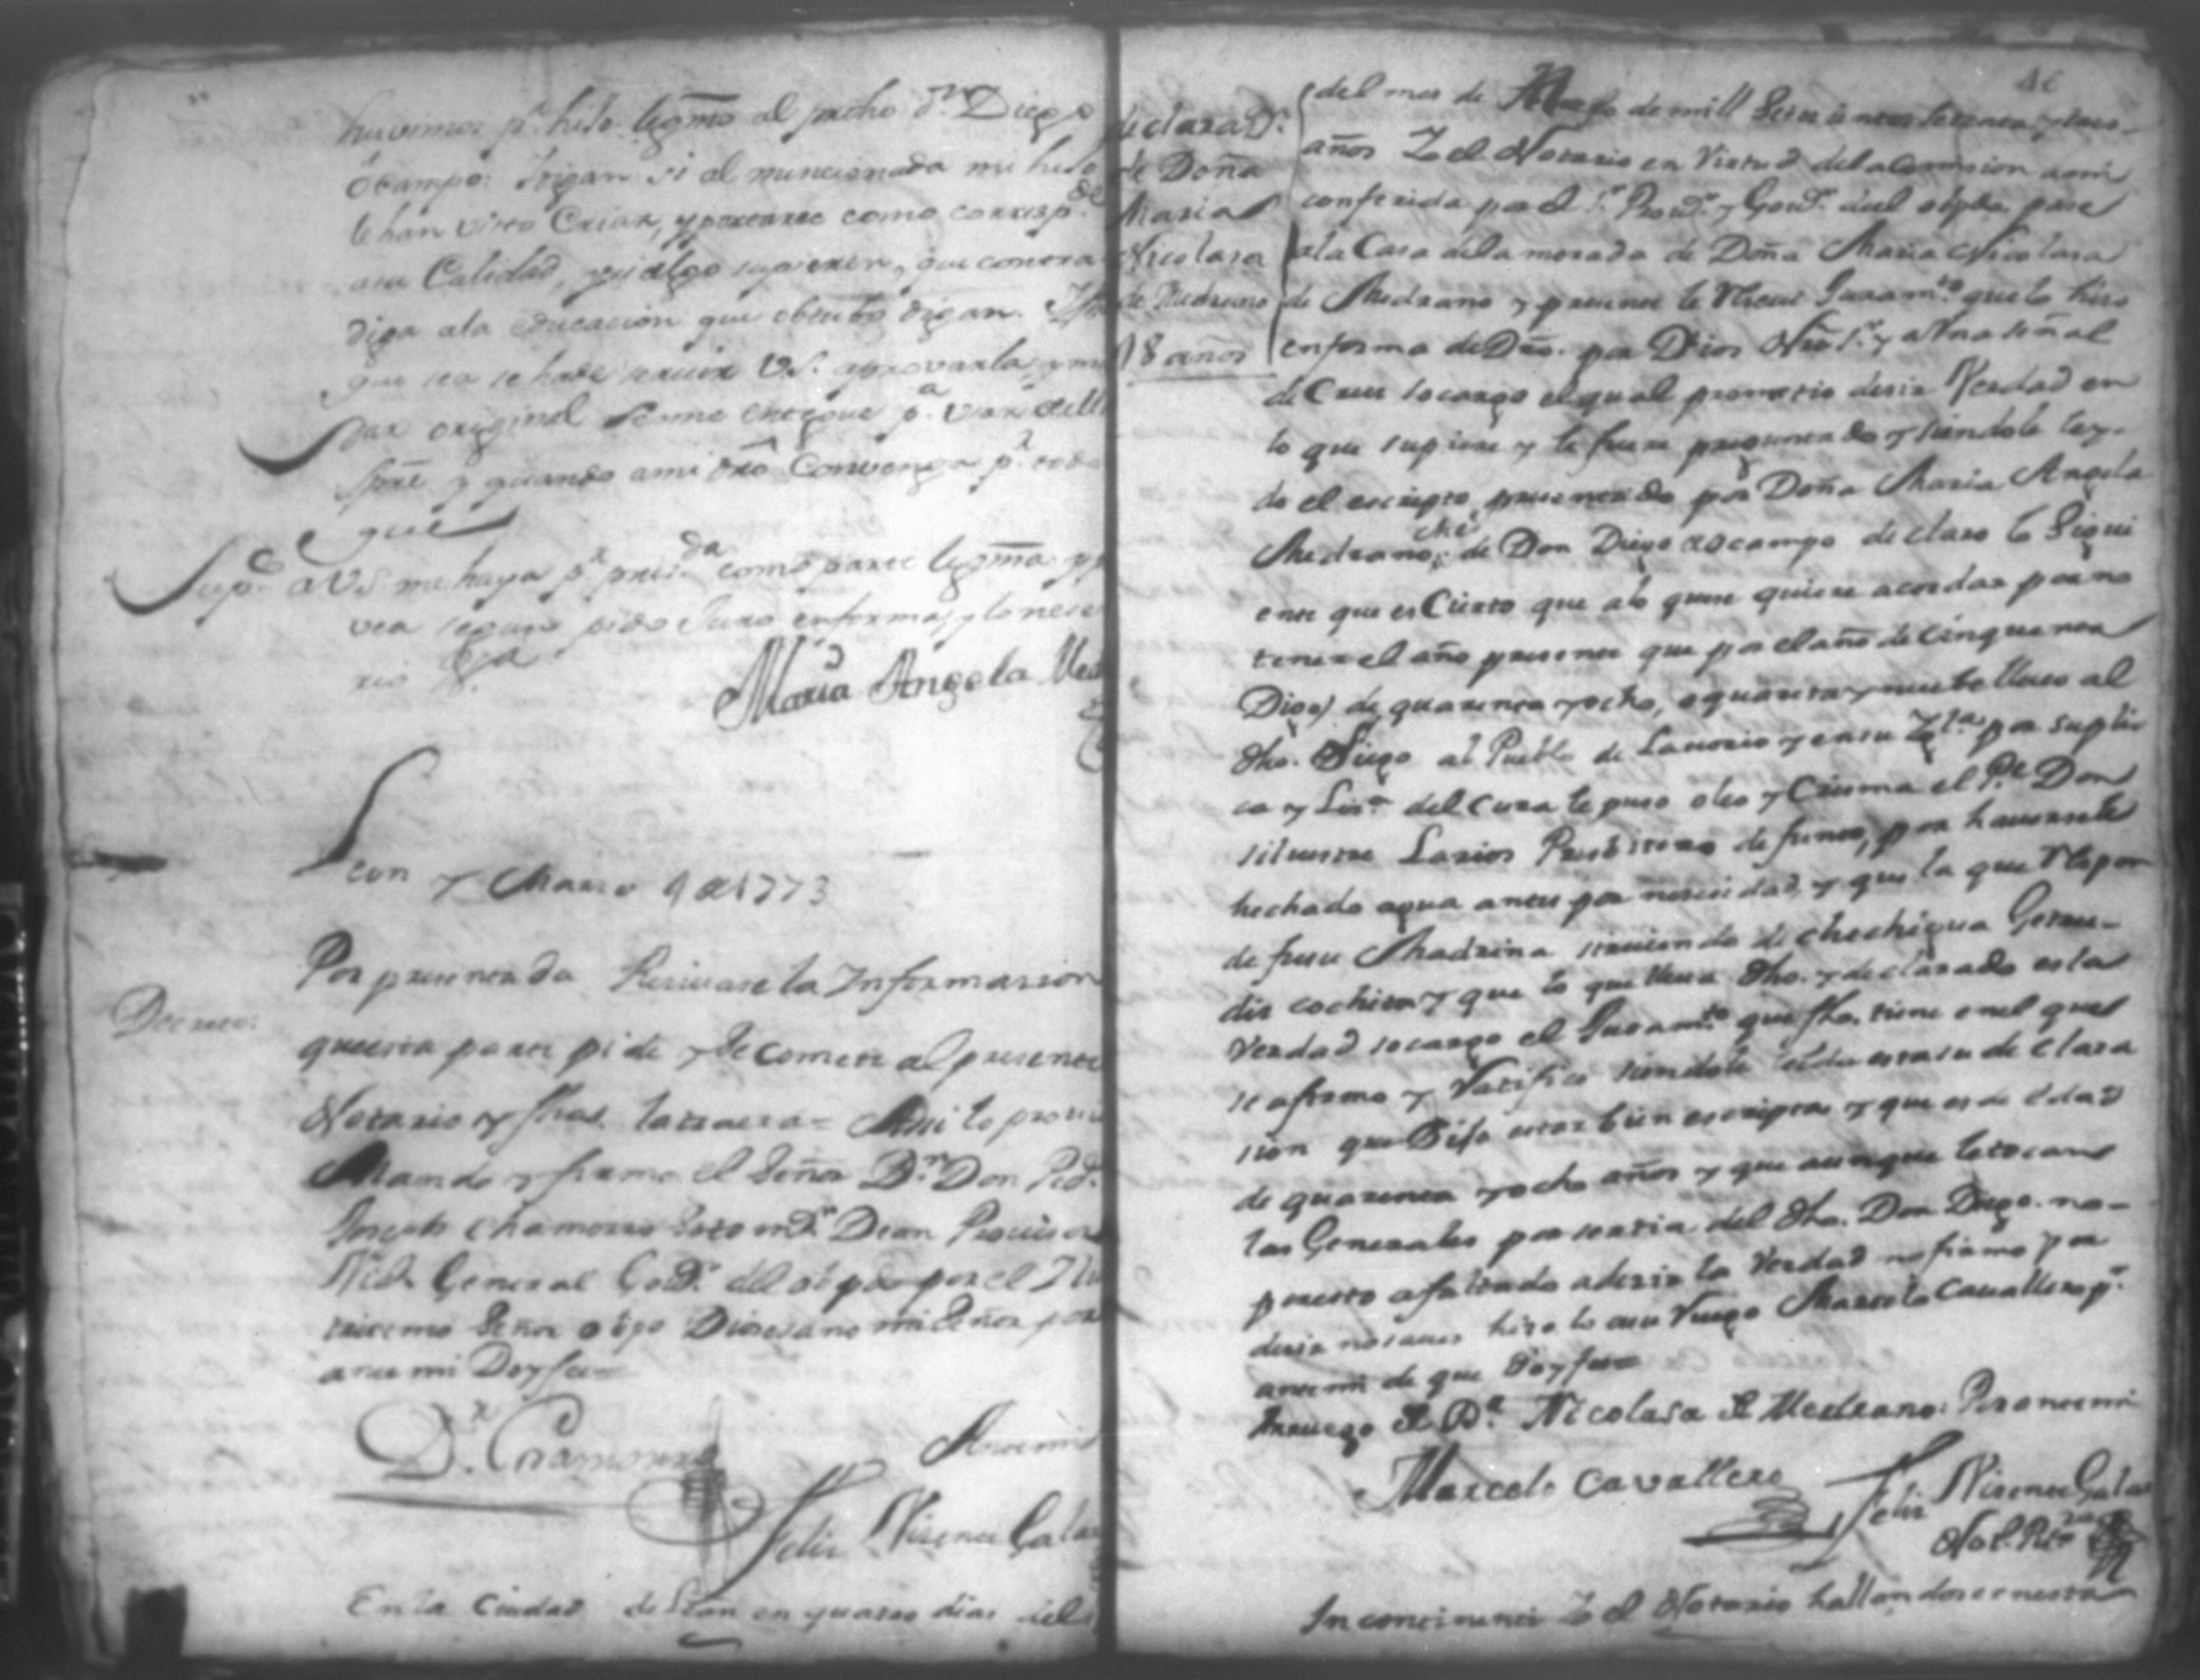 huvimos pr. hijo legmo al pocho dn. Diego
Ocampo: Y digan si al mencionado mi hijo
le han visto Criar, y portarse como corresp.de
a su Calidad, y si algo supieren, que contra
diga a la educacion que obtubo digan. Y
que sea se ha de servir VS. aprovarla, y m
dar original se me entregue pa. usar della
Spre. y quando a mi dro Convenga pr. todo
que
Supco. a VS. me haya pr. pres.da como parte legma y p
vea segun pido Juro en forma, y lo nese
rio &a
Maria Angela Med
Leon y Marzo 9 de 1773
Decreto:
Por presentada Resivase la Informasion
que esta parte pide y se comete al presente
Notario y fhas. la traera = Assi lo prov
Mando y firmo el Señor Dr. Don Pedo.
Joseph Chamorro Dean Provisor
Vico. General Govr. del obpdo por el Ilu
tricemo Señor obpo Diosesano mi Señor por
ante mi Doy fee =
Dr. Chamorro
Ante mi
Felis Visente Gala
En la Ciudad de Leon en quatro dias del
declarason.
de Doña
Maria
Nicolasa
de Medrano
18 años
del mes de Marzo de mill Setesientos setenta y tres
años Yo el Notario en Virtud de la Comision a mi
conferida por el Sr. Provr. y Govr. deel obpdo. pase
a la Casa de la morada de Doña Maria Nicolasa
de Medrano y presente le Resivi Juramto. que lo hiso
en forma de Dro. por Dios Nro Sr. y una señal
de Cruz socargo el qual prometio desir Verdad en
lo que supiere y le fuere preguntado y siendole ley-
do el escripto presentado por Doña Maria Angela
Medrano, de Don Diego de ocampo declaro lo Sigui
ente que es Cierto que a lo que se quiere acordar por no
tener el año presente que por el año de Cinquenta
Digo) de quarenta y ocho, o quarenta y nuebe llevo al
dho. Diego al Pueblo de y en su Yga. por supli
ca y Lisa. del Cura le puso oleo y Crisma el Pe. Don
Silvestre Larios Presbitero difunto, por haversele
hechado agua antes por nesesidad, y que la que Respon
de fue su Madrina sirviendo de chichigua Getru-
dis cochita y que lo que lleva dho. y declarado es la
Verdad socargo el Juramto. que fho. tiene en el que
se afirmo y Ratifico siendole leida esta su declara
sion que Dijo estar bien escripta y que es de edad
de quarenta y ocho años y que aunque le tocan
las Generales por ser tia del dho. Don Diego. no-
por esto a faltado a desir la Verdad no firmo por
desir no saver hiso lo a su Ruego Marcelo Cavallero pr.
ante mi de que Doy fee =
A ruego de Da. Nicolasa de Medrano: Por ante mi
Marcelo Cavallero
Felis Visente Galar
Not. Recor.
In continenti Yo el Notario hallandose en esta